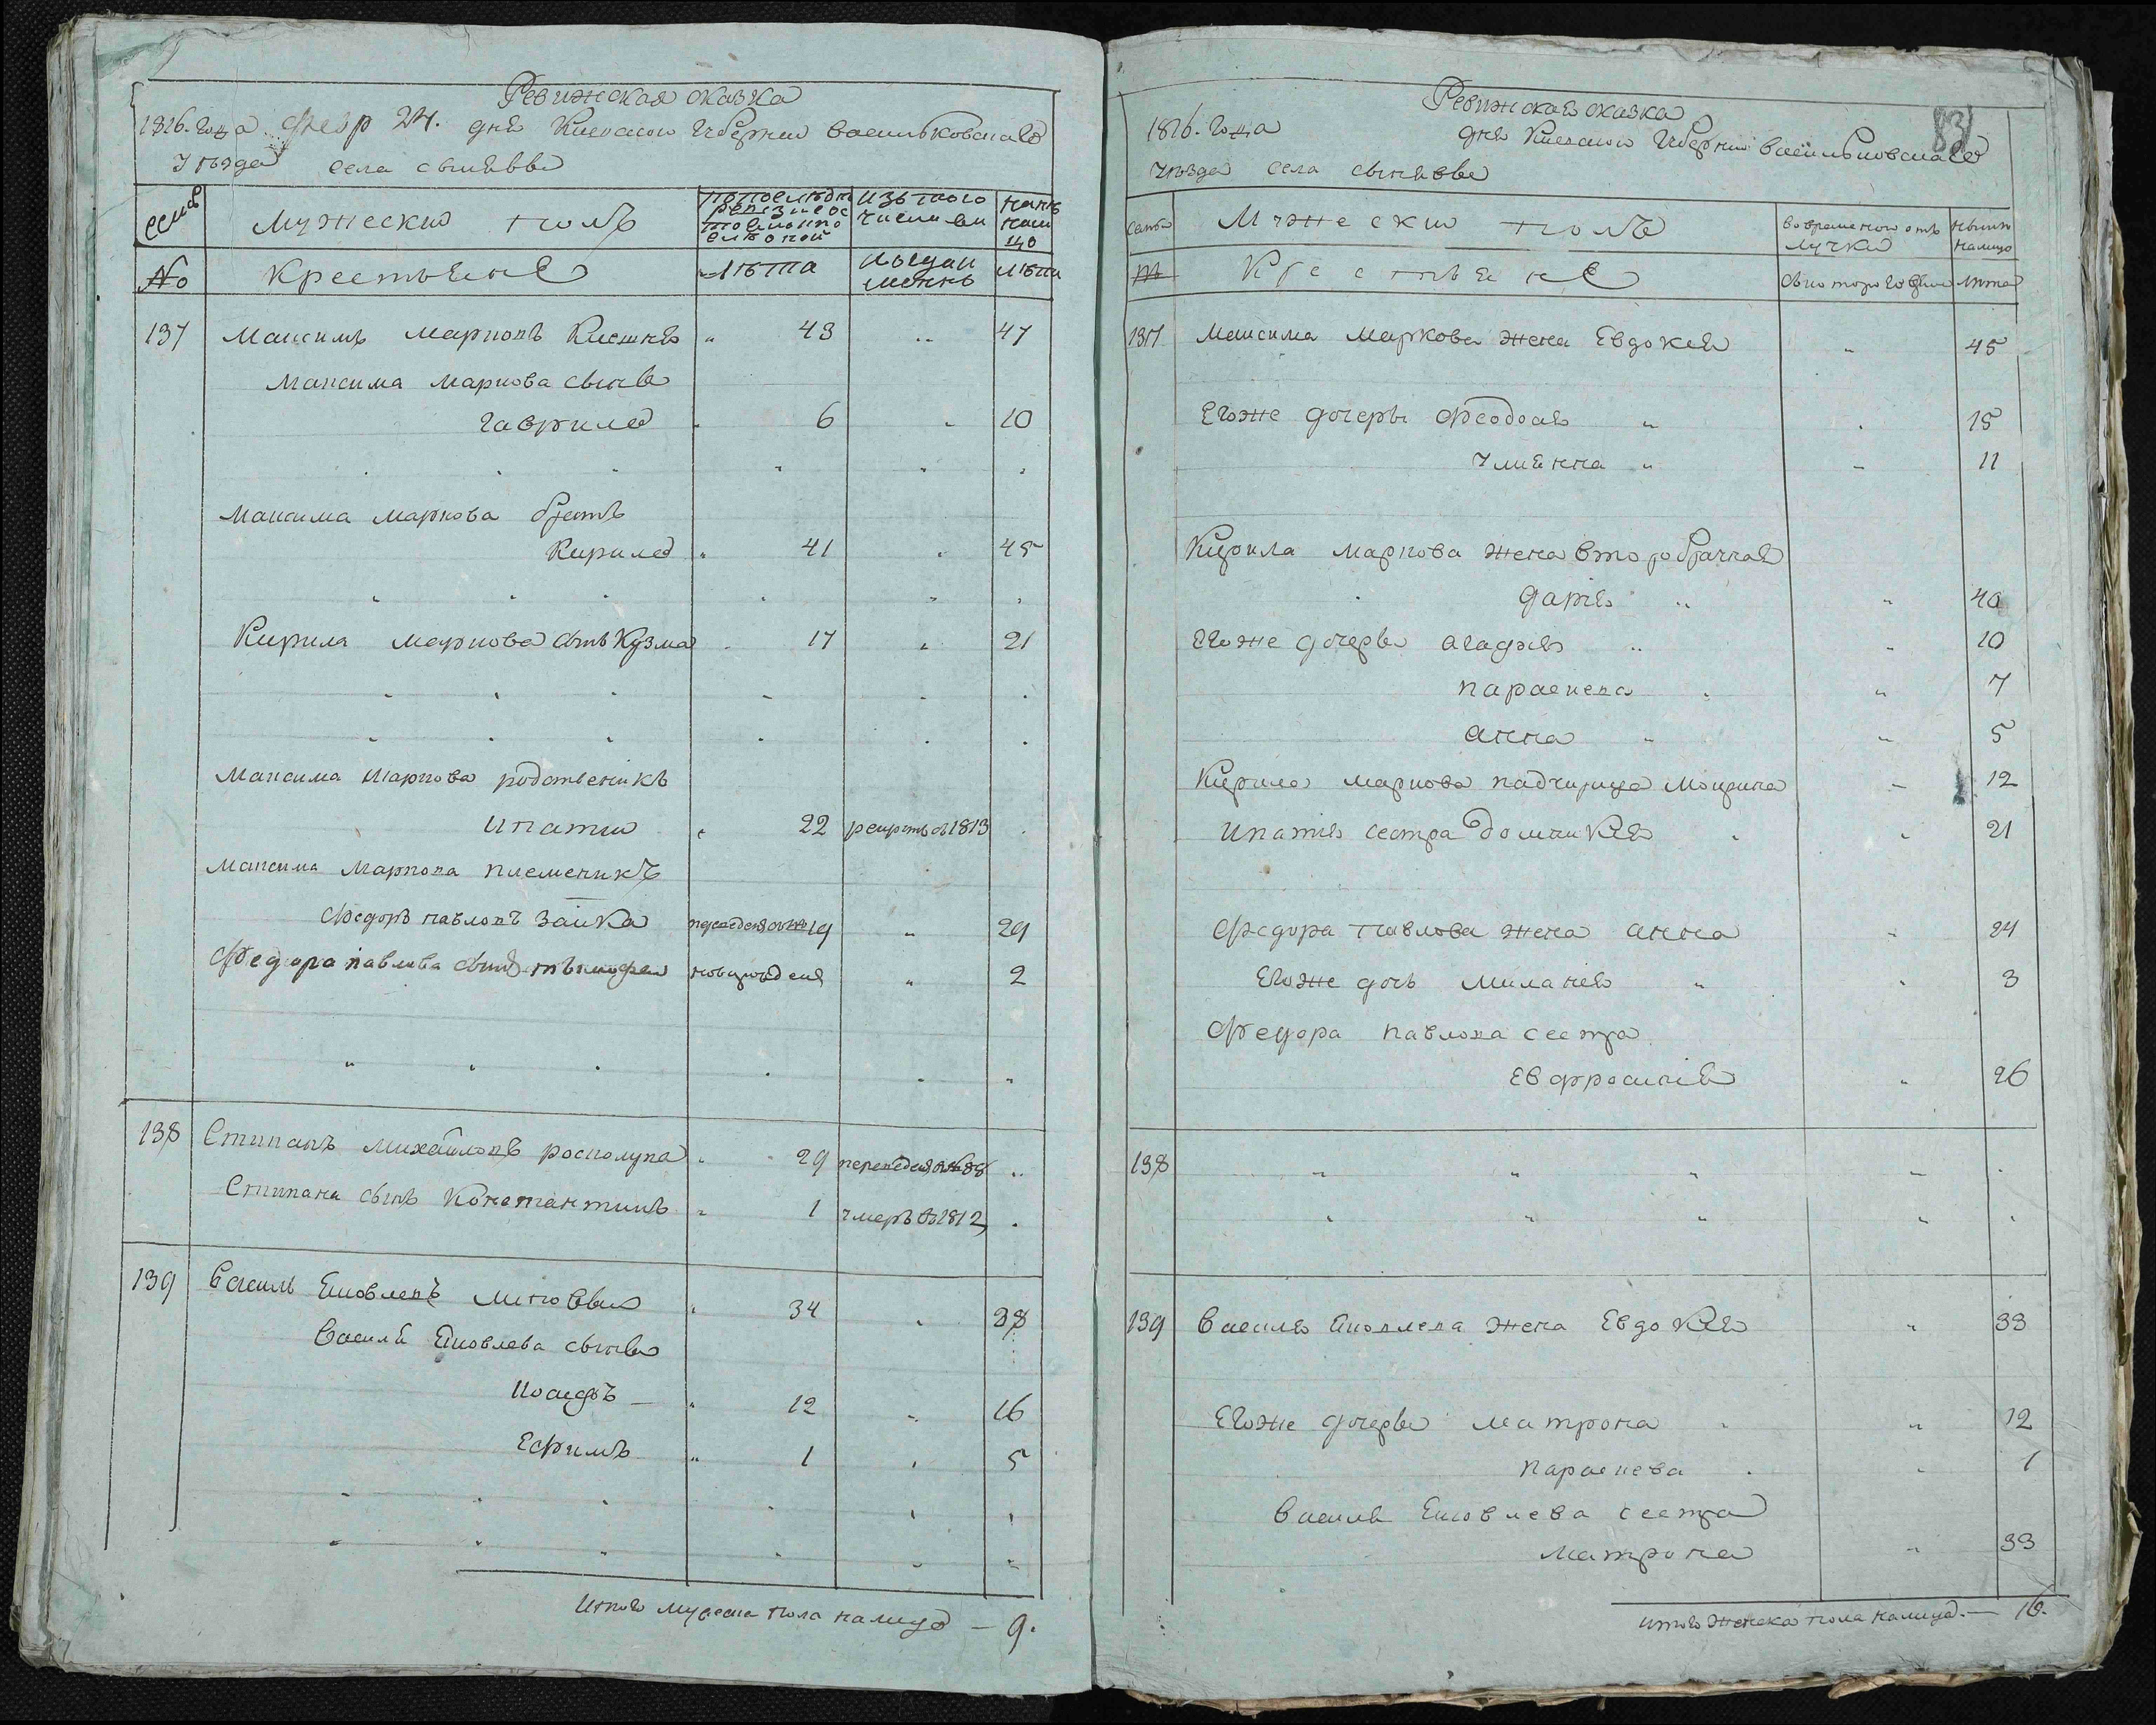 Ревижская сказка
1816. года Февр 24. дня Киевской Губернии васильковскаго
уезда села
семьи
Мужеский полъ
по последней ревизии состояло
изъ того числа вы
ныне на лицо
№
Крестьяне
лета
лета
137 Максимъ Марковъ " 43 .. 47
Максима Маркова сыны
Гаврило . 6 . 10
Максима Маркова братъ
Кирило " 41 . 45
Кирила Маркова сынъ Кузма . 17 " 21
Максима Маркова родственикъ
Ипатий " 22 рекрутъ въ 1813 .
Максима Маркова племеникъ
Федоръ павловъ заика 19 " 29
Федора павлова сынъ тымофей новорожденъ " 2
138 Стипанъ Михайловъ росполупа . 29 переведенъ ..
Стипана сынъ Константинъ " 1 умеръ въ 1812 .
139 Василь Яковлевъ " 34 . 38
Василя Яковлева сыны
Иосифъ " 12 " 16
Ефимъ " 1 . 5
Итого мужеска пола налицо — 9.
Ревижская сказка
83
1816. года дня Киевской Губернии васильковскаго
уезда села
семьи
Мужеский полъ
во временной отлучке
ныне налицо
Крестьяне
съ котораго времени
лета
137 Максима Маркова жена Евдокия " 45
Егоже дочеры Феодосия " . 15
Улиянна " " 11
Кирила Маркова жена второбрачная
дария " " 40
Егоже дочеры агафия " " 10
параскева . " 7
анна " " 5
Кирила Маркова падчирица Мокрина " 12
Ипатия сестра домникия . " 21
Федора павлова жена анна " 24
Егоже дочь милания " . 3
Федора павлова сестра
Евфросиния " 26
138
139 Василя Яковлева жена Евдокия " 33
Егоже дочеры матрона . " 12
параскева . " 1
Василя Яковлева сестра
Матрона " 33
итого женска пола налицо. — 16.